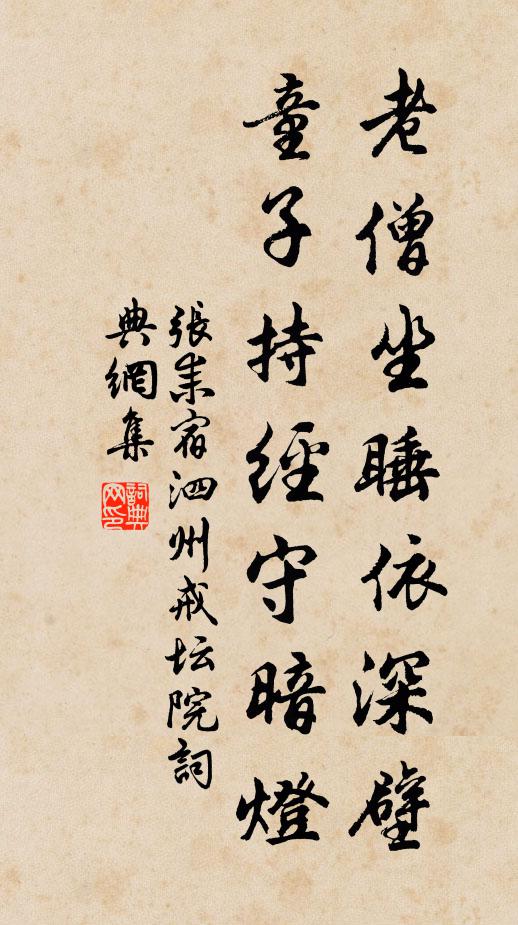 老僧坐睡依深壁
童子持經守暗燈
張耒宿泗州戒坛院詞
典網集
詞典
网印